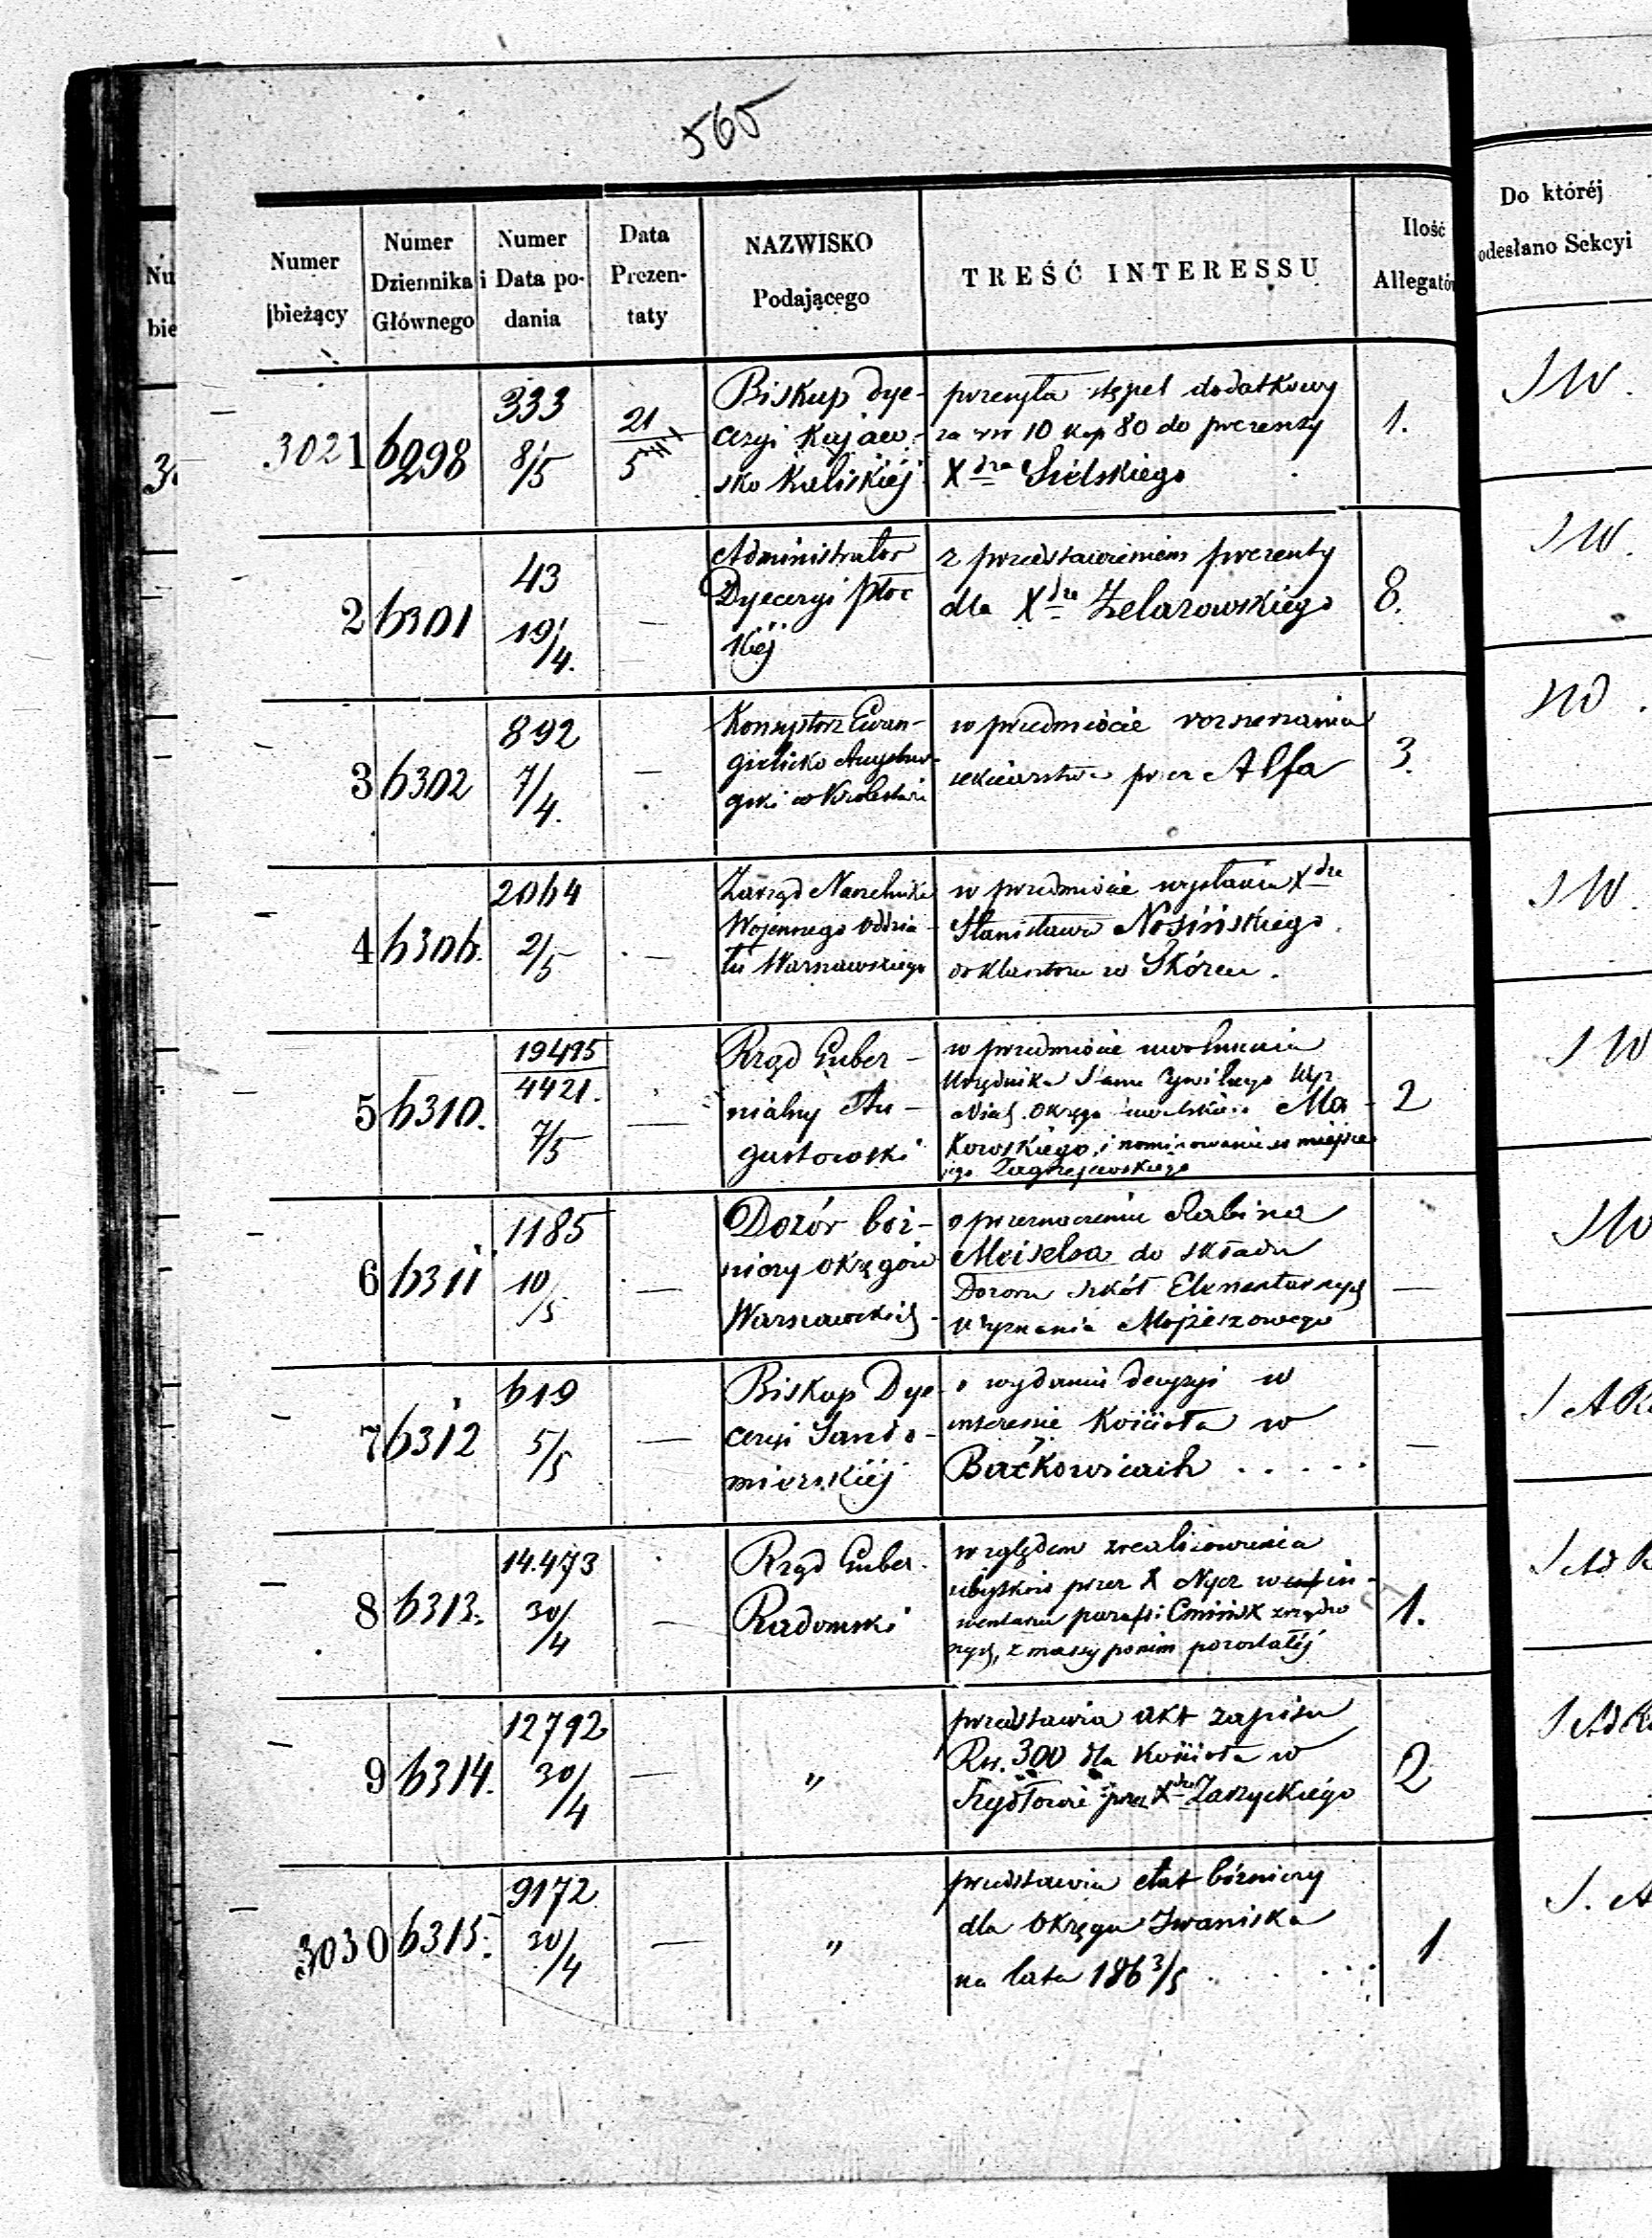 565
Numer bieżący
Numer Dziennika Głównego
Numer i Data podania
Data Prezentaty
NAZWISKO Podającego
TREŚĆ INTERESSU
Ilość Allegatów
Do któréj odesłano Sekcyi
3021 6298 333 8/5 21/5
Biskup Dye-
cezyi Kujaw-
sko Kaliskiéj
przesyła stępel dodatkowy
za rsr 10 kop 80 do prezenty
X dza Sielskiego
1.
SW.
2 6301 43 19/4. —
Administrator
Dyecezyi Płoc
kiéj
z przedstawieniem prezenty
dla X dza Żelazowskiego
8.
SW.
3 6302 892 7/4. —
Konsystorz Ewan-
gielicko Augsbur-
gski w Królestwie
w przedmiocie rozszerzania
sekciarstwa przez Alfa
3.
4 6306. 2064 2/5 —
Zarząd Naczelnika
Wojennego Oddzia-
łu Warszawskiego
w przedmiocie wysłania X dza
Stanisława Nosińskiego
do Klasztoru w Skórcu.
SW.
5 6310. 19495 4421. 7/5 —
Rząd Guber-
nialny Au-
gustowski
w przedmiocie uwolnienia
Urzędnika Stanu Cywilnego Wyz
Okręgu Ma-
kowskiego, i nominowanie w miejsce
jego Zagrzejewskiego
2
SW
6 6311 1185 10/5 —
Dozór boż-
niczy Okręgów
Warszawskich
o przeznaczenie Rabina
Meiselsa do składu
Dozoru szkół Elementarnych
wyznania Mojżeszowego
—
SW
7 6312 619 5/5 —
Biskup Dye-
cezyi Sando-
mierskiéj
o wydanie decyzyi w
interesie Kościoła w
Baćkowicach . . . . .
—
8 6313. 14.473 30/4 —
Rząd Guber.
Radomski
względem zrealizowania
ubytków przez X Nycz w in-
wentarzu parafii Cmińsk zrządzo
nych, z massy po nim pozostałéj
1.
9 6314. 12792 30/4 —
"
przedstawia akt zapisu
Rs. 300 dla Kościoła w
Szydłowie przez X dza Zaszyckiégo
2
3030 6315. 9172 30/4 —
"
przedstawia etat bóżniczy
dla Okręgu Iwaniska
na lata 1863/5 . . . .
1